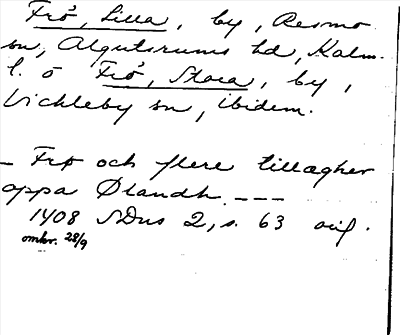 Frö, Lilla, by, Resmo
sn, Algutsrums hd, Kalm.
l. o Frö, Stora, by,
Vickleby sn, ibidem.
– Frø och flere tillægher
oppa Ølandh – – –
1408 SDns 2, s. 63 avs.
omkr. 28/9